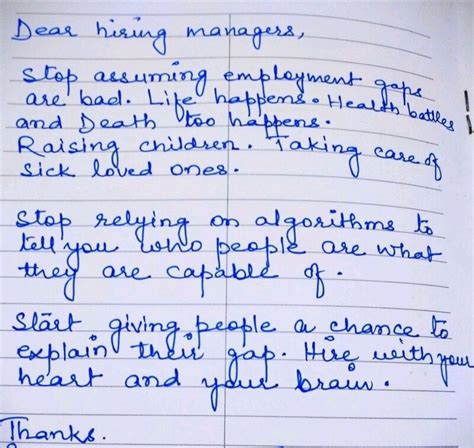 Dear hiring managers,
Stop assuming employment gaps
are bad. Life happens. Health battles
and Death too happens.
Raising children. Taking care of
sick loved ones.
Stop relying on algorithms to
tell you who people are what
they are capable of.
Start giving people a chance to
explain their gap. Hire with your
heart and your brain.
Thanks.